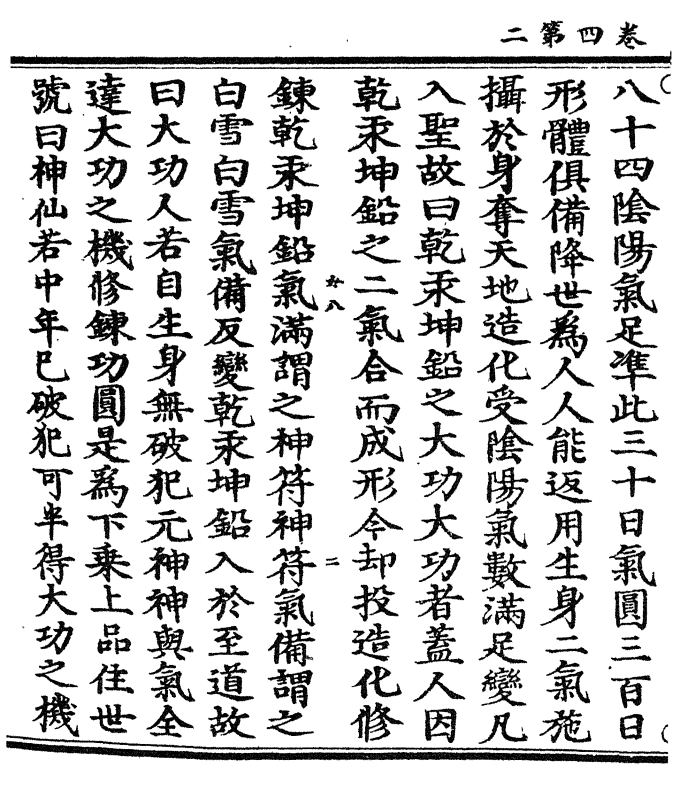 卷四第二
八十四陰陽氣足準此三十日氣圓三百日
形體俱備降世為人人能返用生身二氣施
攝於身奪天地造化受陰陽氣數滿足變凡
入聖故曰乾汞坤鉛之大功大功者蓋人因
乾汞坤鉛之二氣合而成形今却投造化修
鍊乾汞坤鉛氣滿謂之神符神符氣備謂之
白雪白雪氣備反變乾汞坤鉛入於至道故
曰大功人若自生身無破犯元神神與氣全
達大功之機修鍊功圓是為下乗上品住世
號曰神仙若中年已破犯可半得大功之機